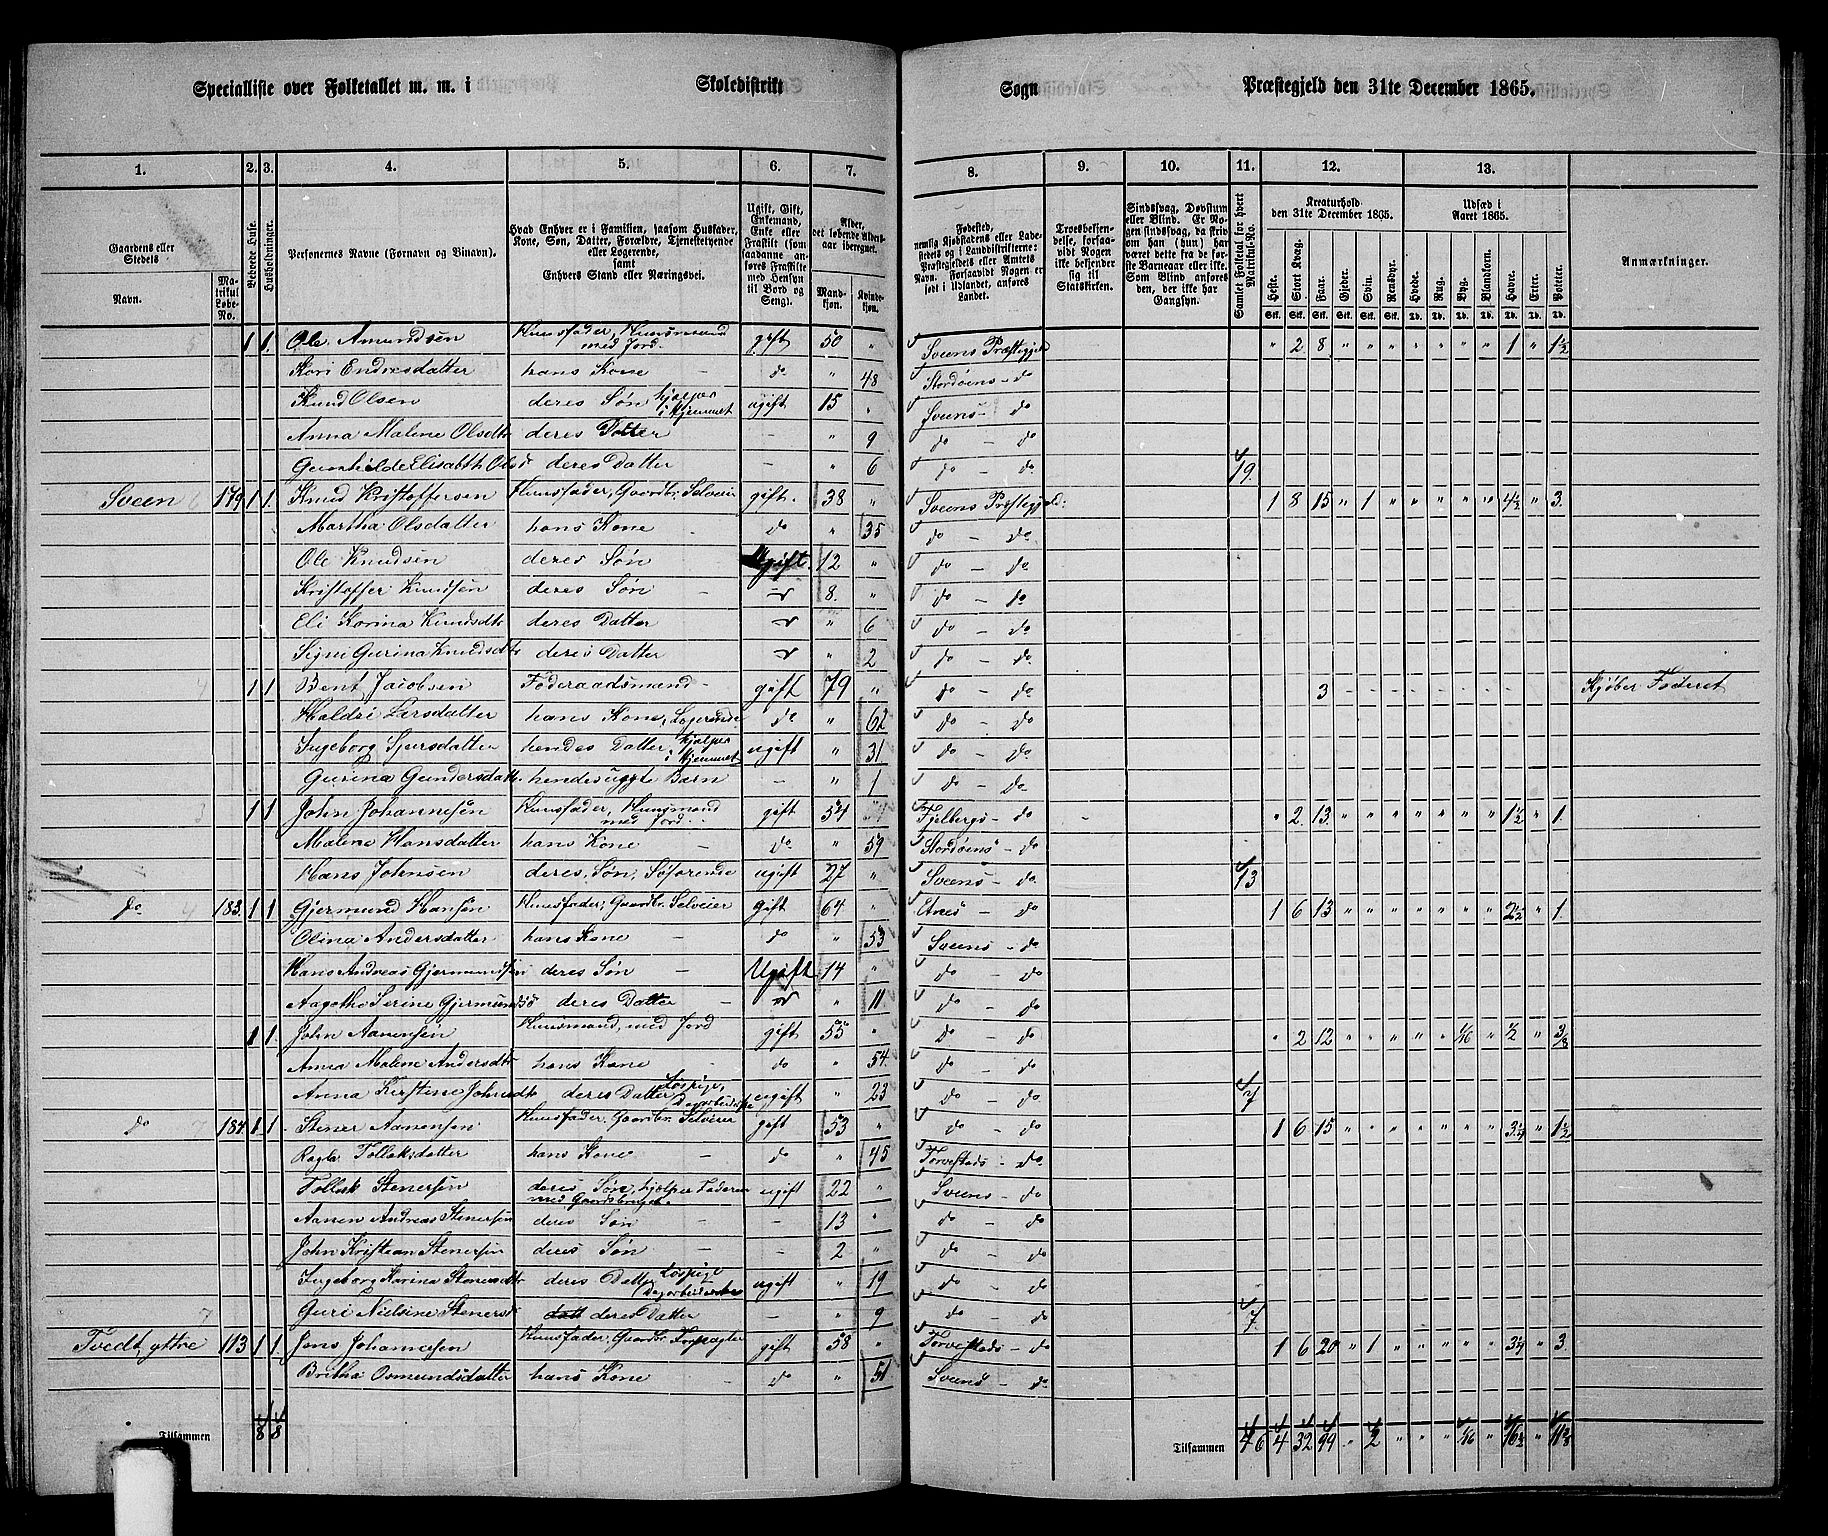 Specialliste over Folketallet m. m. i Skoledistrikt Sogn Præstegjeld den 31te December 1865.
1. 2. 3. 4. 5. 6. 7. 8. 9. 10. 11. 12. 13.
Gaardens eller Stedets
Navn.
Matrikul Løbe-No.
Beboede Huse.
Husholdninger.
Personernes Navne (Fornavn og Binavn).
Hvad Enhver er i Familien, saasom Husfader, Kone, Søn, Datter, Forældre, Tjenestetyende eller Logerende, samt Enhvers Stand eller Næringsvei.
Ugift, Gift, Enkemand, Enke eller Fraskilt (som saadanne anføres Fraskilte med Hensyn til Bord og Seng).
Alder, det løbende Alders-aar iberegnet.
Mandkjøn.
Kvindekjøn.
Fødested, nemlig Kjøbstadens eller Ladestedets og i Landdistrikterne: Præstegjeldets eller Amtets Navn. Forsaavidt Nogen er født i Udlandet, anføres Landet.
Troesbekjendelse, forsaavidt Nogen ikke bekjender sig til Statskirken.
Sindssvag, Døvstum eller Blind. Er Nogen sindssvag, da skriv om han (hun) har været dette fra de første Barneaar eller ikke. Som Blind anføres den, der ikke har Gangsyn.
Samlet Folketal for hvert Matrikul-No.
Kreaturhold den 31te December 1865.
Heste. Stort Kvæg. Faar. Gjeder. Sviin. Rensdyr.
Udsæd i Aaret 1865.
Hvede. Rug. Byg. Blandkorn. Havre. Erter. Poteter.
Stk. Stk. Stk. Stk. Stk. Stk. Td. Td. Td. Td. Td. Td. Td.
Anmærkninger.
1 1. Ole Amundsen Huusfader, Huusmand med Jord. gift 50 " Sveens Præstegjeld " 2 8 " " " " " " " 1 " 1½
Kari Endresdatter hans Kone do " 48 Stordøens - do
Knud Olsen deres Søn, hjælper i Hjemmet ugift 15 " Sveens - do
Anna Malene Olsdtr deres Datter - " 9 do - do
Gunhilde Elisabth Olsd deres Datter - " 6 do - do 19.
Sveen 179 1 1. Knud Kristoffersen Huusfader, Gaardbr. Selveier gift. 38 " Sveens Præstegjeld: 1 8 15 " 1 " " " " " 4½ " 3.
Martha Olsdatter hans Kone do " 35 do - do
Ole Knudsen deres Søn Ugift. 12 " do - do
Kristoffer Knudsen deres Søn 8. " do - do
Eli Korina Knudsdtr deres Datter " 6 do - do
Signi Gurina Knudsdtr deres Datter " 2 do - do
1 1 Bent Jacobsen Føderaadsmand gift 79 " do - do 3 Kjøber Foderet
Haldri Larsdatter hans Kone, Logerende do " 62 do - do
Ingeborg Sjursdatter hendes Datter, hjælper i Hjemmet ugift " 31 do - do
Gurina Gundersdatt. hendes uægte Barn - " 1 do - do
1 1 John Johannesen Huusfader, Huusmand med Jord gift 54 Fjelbergs - do " 2. 13. " " " " " " " 1½ " 1.
Malene Hansdatter hans Kone do " 59 Stordøens - do
Hans Johnsen deres Søn, Søfarende ugift 27 " Sveens - do 13
do 183. 1 1 Gjermund Hansen Huusfader, Gaardbr. Selveier gift 64 " Etnes - do 1 6 13 " " " " " " " 2½ " 1.
Olina Andersdatter hans Kone do " 53 Sveens - do
Hans Andreas Gjermundsen deres Søn Ugift 14 " do - do
Aagotha Serine Gjermundsd deres Datter " 11. do - do
1 1. John Aanensen Huusmand, med Jord gift 55 " do - do " 2 12 " " " " " 1/16 " ½ " 3/8
Anna Malene Andersdtr hans Kone do " 54. do - do
Anna Kirstine Johnsdtr deres Datter Løspige, Dagarbeiderske ugift " 23 do - do 7
do 184. 1 1. Stener Aanensen Huusfader, Gaardbr. Selveier gift 53 " do - do 1 6 15 " " " " " " " 3¼ " 1½
Ragla Tollaksdatter hans Kone do " 45 Torvestads - do
Tollak Stenersen deres Søn, hjælper Faderen med Gaardsbruget. ugift 22 " Sveens - do
Aanen Andreas Stenersen deres Søn - 13 " do - do
John Kristian Stenersen deres Søn - 2 " do - do
Ingeborg Karina Stenersdtr deres Datter Løspige Dagarbeiderske ugift " 19 do - do
Guri Nielsine Stenersd deres Datter - " 9 do - do 7.
Tvedt yttre 113 1 1. Jens Johannesen Huusfader, Gaardbr. Forpagter gift 58 " Torvestads - do 1 6 20 " 1 " " " " " 3¼ " 3.
Britha Osmundsdatter hans Kone do " 51 Sveens - do
Tilsammen 8 8 Tilsammen 46 4 32 99 " 2 " " " 1/16 " 16½ " 11 3/8